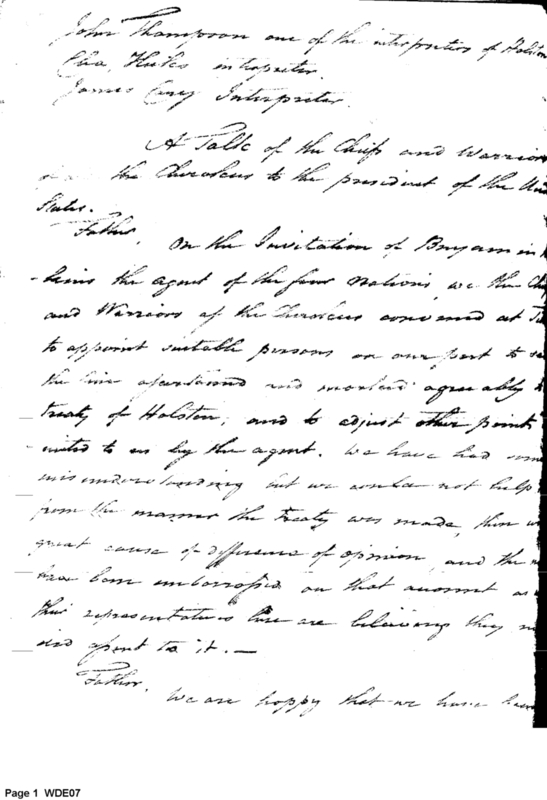 John Thompson one of the interpreters of Holston
Cha. Hicks interpreter.
James Carey Interpreter.
A Talk of the Chiefs and Warrior
the Cherokees to the president of the Uni
States.
Father, On the Invitation of Benjamin
the agent of the four nations, we the Ch
and Warriors of the Cherokees convened at T
to appoint suitable persons on our part to
the line ascertained and marked agreeably
treaty of Holston, and to adjust other points
mited to us by the agent. We have had some
misunderstanding but we could not help
from the manner the treaty was made, ther w
great cause of difference of opinion, and the
have been embarrassed on that account as
their representatives here are believing they
did assent to it. —
Father,
We are happy that we have
Page 1 WDE07